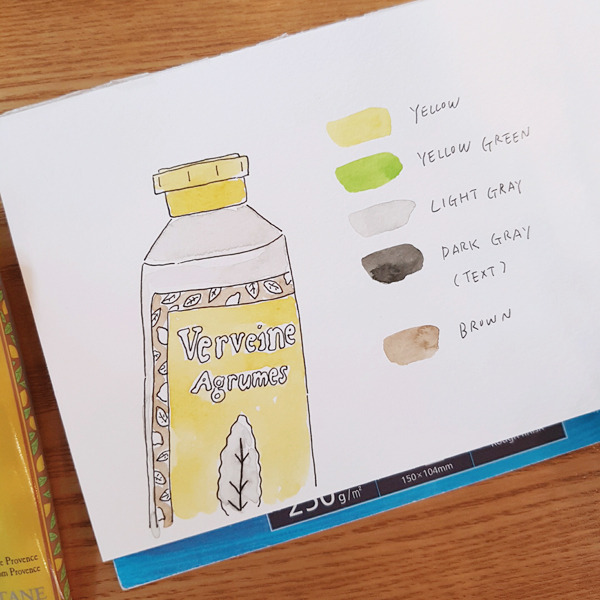 YELLOW
YELLOW GREEN
LIGHT GRAY
DARK GRAY
(TEXT)
BROWN
Verveine
Agrumes
g/m²
150×104mm
Provence
Provence
TANE